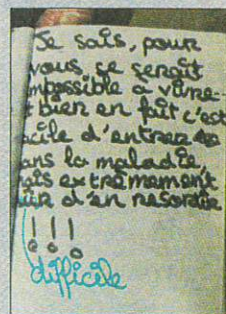 Je sais, pour
vous ce serait
mpossible a vivre..
t bien en fait c'est
cile d'entrer
ans la maladie,
ais extrêmement
d'en resortir
!!!
difficile